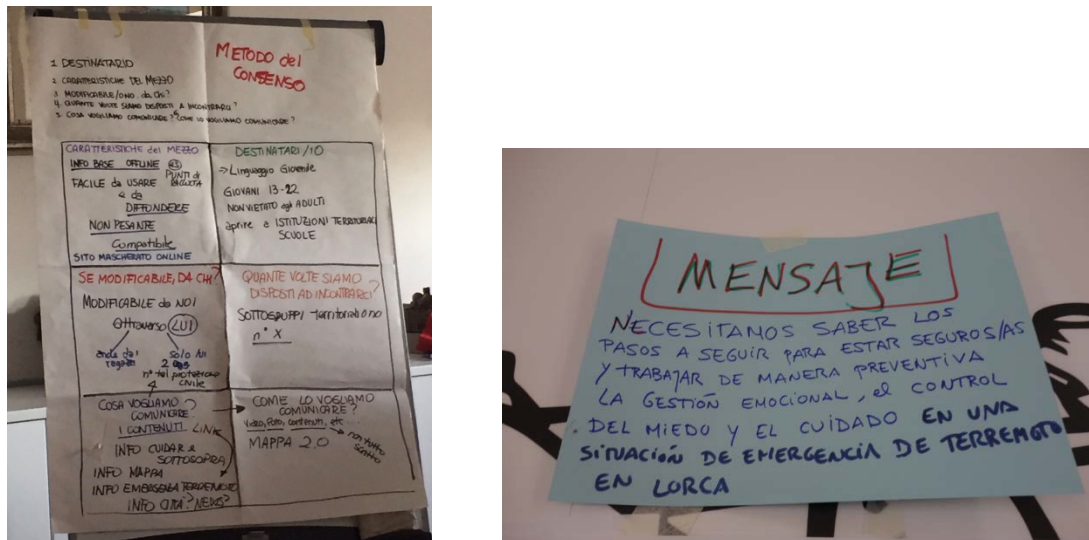 METODO del
CONSENSO
1 DESTINATARIO
2 CARATTERISTICHE DEL MEZZO
3 MODIFICABILE/ONO. da chi?
4. QUANTE VOLTE SIAMO DISPOSTI A INCONTRARCI?
5. COSA VOGLIAMO COMUNICARE? E COME LO VOGLIAMO COMUNICARE?
CARATTERISTICHE del MEZZO
INFO BASE OFFLINE
PUNTI di
RACCOLTA
FACILE da USARE
e da
DIFFONDERE
NON PESANTE
Compatibile
SITO MASCHERATO ONLINE
DESTINATARI/IO
=> Linguaggio Giovanile
GIOVANI 13-22
NON VIETATO agli ADULTI
aprire a ISTITUZIONI TERRITORIALI
SCUOLE
SE MODIFICABILE, DA CHI?
MODIFICABILE da NOI
attraverso LUI
anche dai
ragazzi
solo lui
2
n° tel protezione
civile
4
QUANTE VOLTE SIAMO
DISPOSTI AD INCONTRARCI?
SOTTOGRUPPI territoriali o no
n° X
COSA VOGLIAMO
COMUNICARE?
I CONTENUTI LINK
INFO CUIDAR e
SOTTOSOPRA
INFO MAPPA
INFO EMERGENZA TERREMOTO
INFO CITTA'? NEWS?
COME LO VOGLIAMO
COMUNICARE?
Video, Foto, contenuti, etc...
non tutto
scritto
MAPPA 2.0
MENSAJE
NECESITAMOS SABER LOS
PASOS A SEGUIR PARA ESTAR SEGUROS/AS
Y TRABAJAR DE MANERA PREVENTIVA
LA GESTIÓN EMOCIONAL, el CONTROL
DEL MIEDO Y EL CUIDADO EN UNA
SITUACIÓN DE EMERGENCIA DE TERREMOTO
EN LORCA